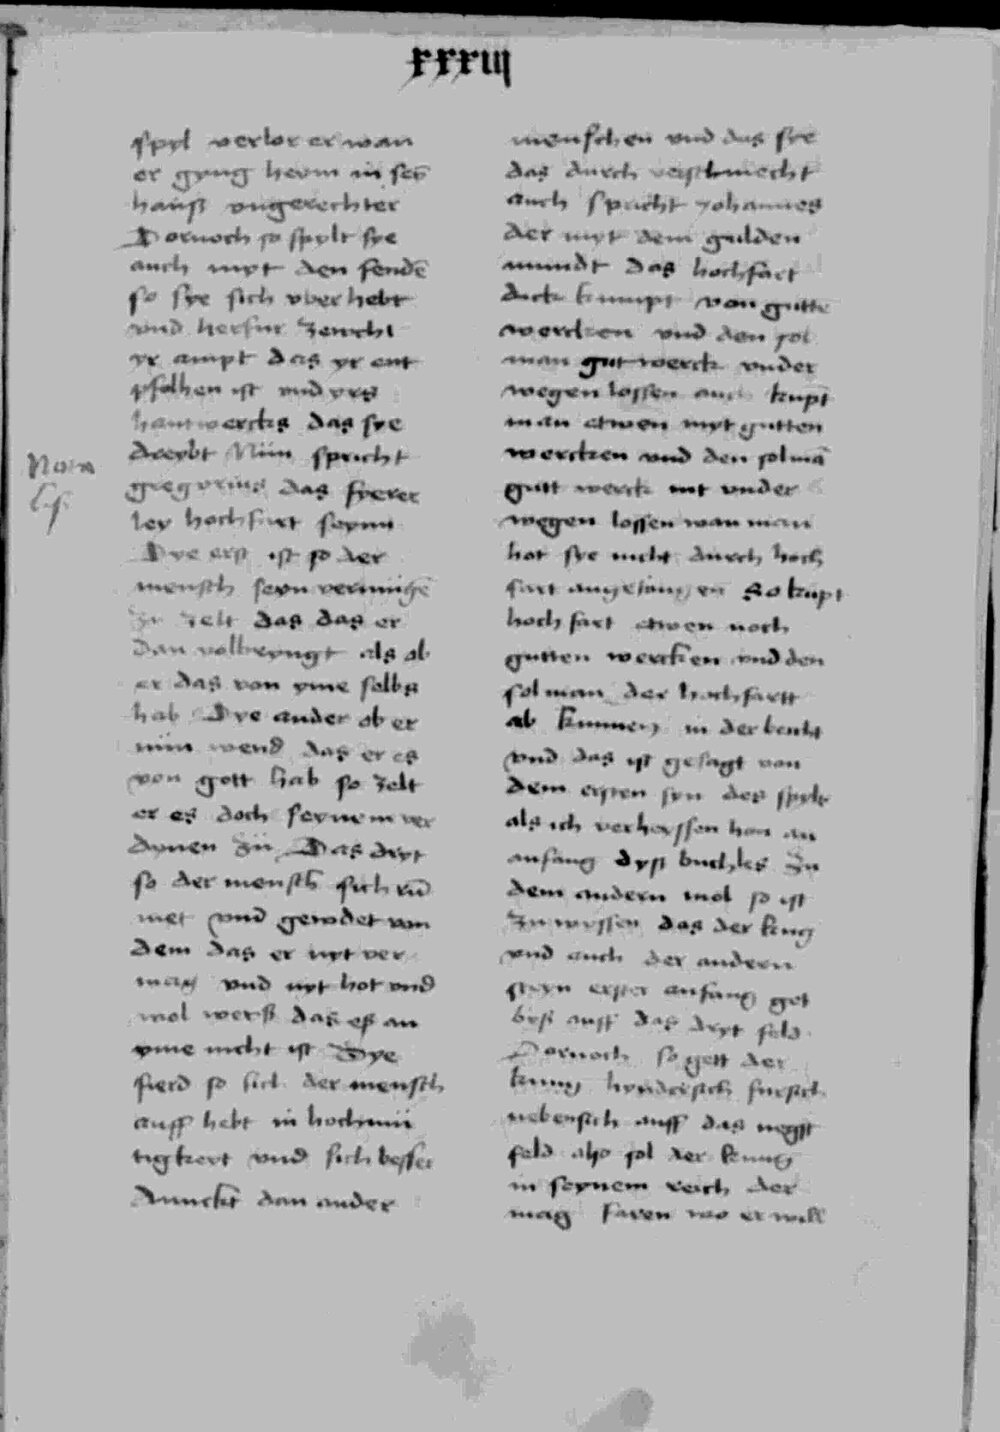 xxxiij
spyl verlor er wan
er gyng heym in sey̅
hauß vngerechter
Dornoch so spylt sye
auch myt den fende̅
so sye sich vber hebt
vnd herfur zeucht
yr ampt das yr ent
pfolhen ist vnd yrs
hantwercks das sye
dreybt Nün spricht
gregorius das fyerer
ley hochfart seynn
Dye erst ist so der
mensch seyn vermuge̅
zu zelt das das er
dan volbreyngt als ob
er das von yme selbs
hab Dye ander ob er
nün wend das er es
von gott hab so zelt
er es doch seynem ver
dynen zü Das dryt
so der mensch sich rü̅
met vnd geredet von
dem das er nyt ver
mag vnd nyt hot vnd
wol weyß das eß an
yme nicht ist Dye
fierd so sich der mensch
auff hebt in hochmü
tigkeyt vnd sich besser
dunckt dan ander
Nota
menschen vnd das sye
das durch verschmecht
auch spricht yohannes
der myt dem gulden
mundt das hochfart
dick kumpt von gutte̅
wercken vnd den sol
man gut werck vnder
wegen lossen auch kupt
man etwen myt gutten
wercken vnd den sol ma̅
gutt werck nit vnder
wegen lossen wan man
hot sye nicht durch hoch
fart angefangen So kupt
hochfart etwen noch
gutten wercken vnd den
sol man der hochfartt
ab kummen in der beicht
vnd das ist gesagt von
dem ersten syn des spyls
als ich verheyssen hon an
anfang dyß buchles Zu
dem andern mol so ist
zu wyssen das der kung
vnd auch der andern
steyn erster anfang get
byß auff das dryt feld
Dornoch so gett der
kung hyndersich fursich
nebensich auff das negst
feld also sol der kunig
in seynem reich der
mag faren wo er will